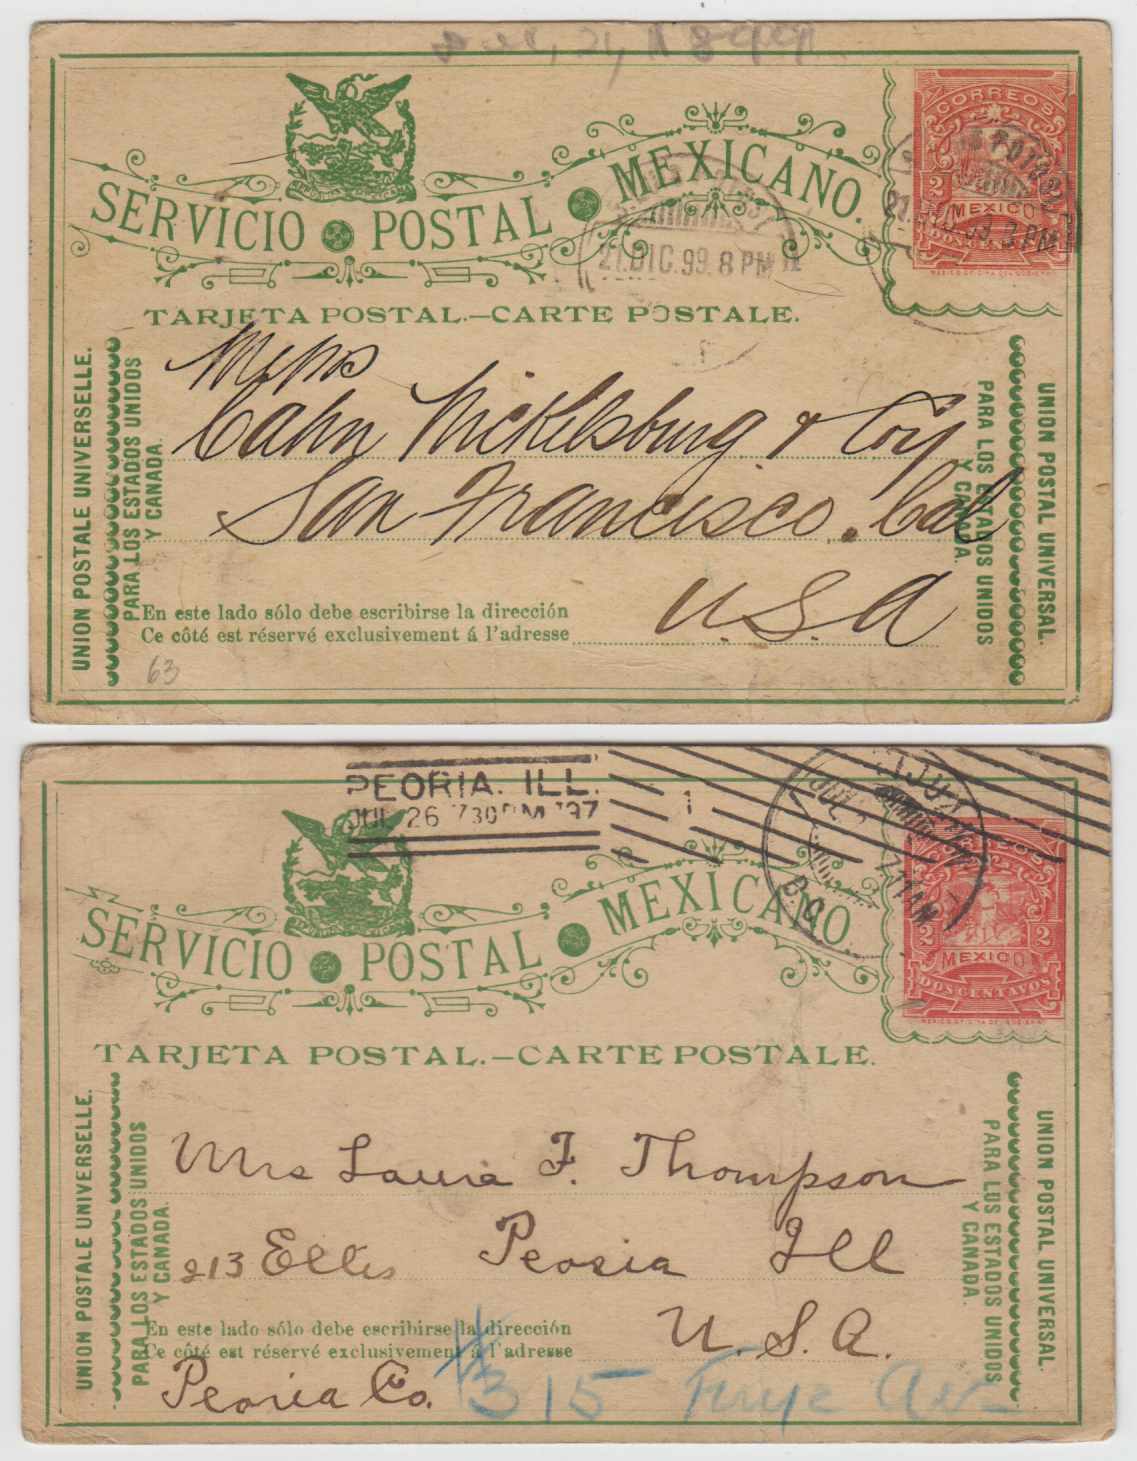 CORREOS
2 2
MEXICO
DOS CENTAVOS
SERVICIO POSTAL MEXICANO.
21. DIC. 99. 8 PM
TARJETA POSTAL.—CARTE POSTALE.
UNION POSTALE UNIVERSELLE.
PARA LOS ESTADOS UNIDOS
Y CANADA.
Messrs
Cahn Nickelsburg & Coy
San Francisco. Cal
U.S.A
En este lado sólo debe escribirse la dirección
Ce côté est réservé exclusivement á l'adresse
UNION POSTAL UNIVERSAL.
PARA LOS ESTADOS UNIDOS
Y CANADA.
63
PEORIA. ILL.
JUL 26 730PM '97
1
JUL
B.C.
CORREOS
2 2
MEXICO
DOS CENTAVOS
SERVICIO POSTAL MEXICANO.
TARJETA POSTAL.—CARTE POSTALE.
UNION POSTALE UNIVERSELLE.
PARA LOS ESTADOS UNIDOS
Y CANADA.
Mrs Laura F. Thompson
213 Ellis Peoria Ill
U.S.A.
En este lado sólo debe escribirse la dirección
Ce côté est réservé exclusivement á l'adresse
Peoria Co.
315 Av
UNION POSTAL UNIVERSAL.
PARA LOS ESTADOS UNIDOS
Y CANADA.